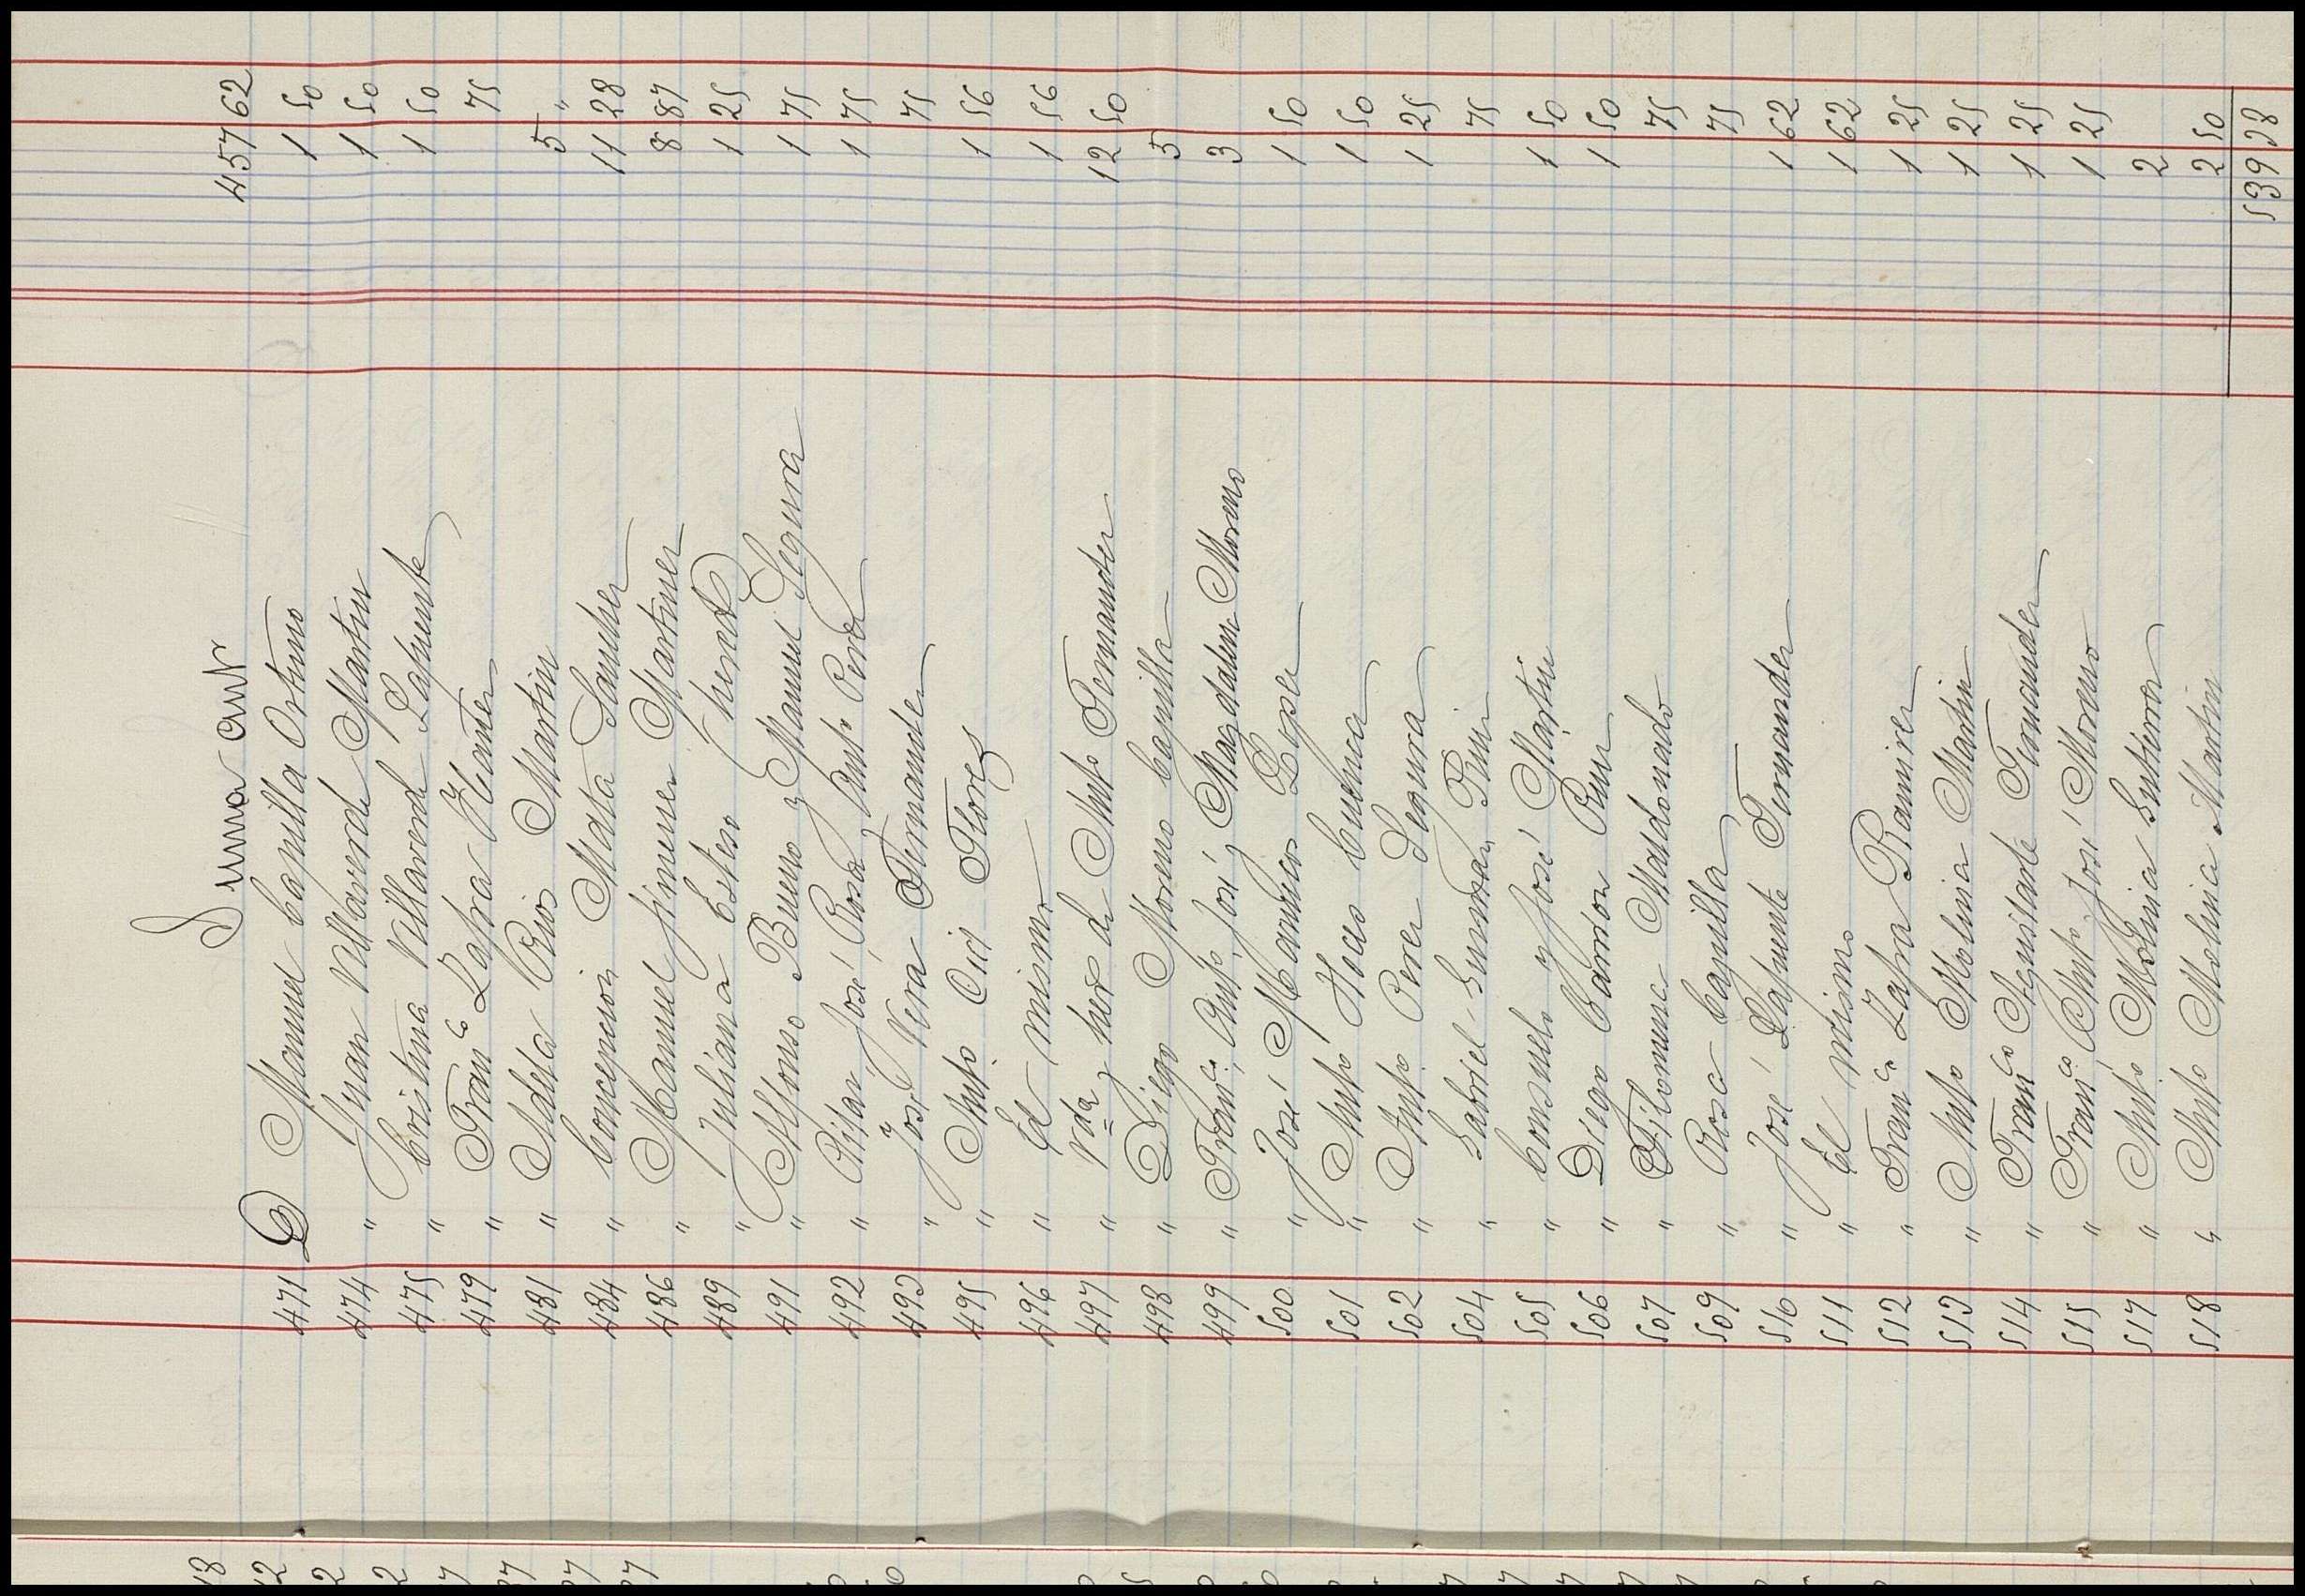 Suma ant 457 62
471 D Manuel Capilla Ortuno 1 50
474 " Juan Villaverde Martin 1 50
475 " Cristina Villaverde Lapuente 1 50
479 " Franco Zafra 75
481 " Adela Rios Martin 5 "
484 " Concepcion Mata Sanchez 11 28
486 " Manuel Jimenez Martinez 8 87
489 " Juliana Esteso 1 25
491 " Alfonso Bueno y Manuel Segura 1 75
492 " Pilar, José, Rosa y Anto Perez 1 75
493 " José Vera Fernandez 75
495 " Anto Cid Florez 1 56
496 " El mismo 1 56
497 " Vda y hers de Anto Fernandez 12 50
498 " Diego Moreno Capilla 5
499 " Franco, Anto, José y Magdalena Moreno 3
500 " José Manrico Lopez 1 50
501 " Anto Haro Cuenca 1 50
502 " Anto Perez Segura 1 25
504 " Gabriel Guzman 75
505 " Consuelo y José Martin 1 50
506 " Diego Barrios 1 50
507 " Filomena Maldonado 75
509 " Rosa Capilla 75
510 " José Lapuente Fernandez 1 62
511 " El mismo 1 62
512 " Franco Zafra Ramirez 1 25
513 " Anto Molina Martin 1 25
514 " Franco Agustarte Fernandez 1 25
515 " Franco, Anto, José Moreno 1 25
517 " Anto Molina Gutierrez 2
518 " Anto Molina Martin 2 50
539 28